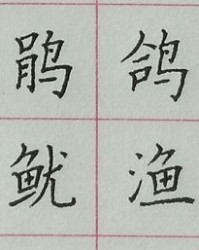 鹃 鸽
鱿 渔